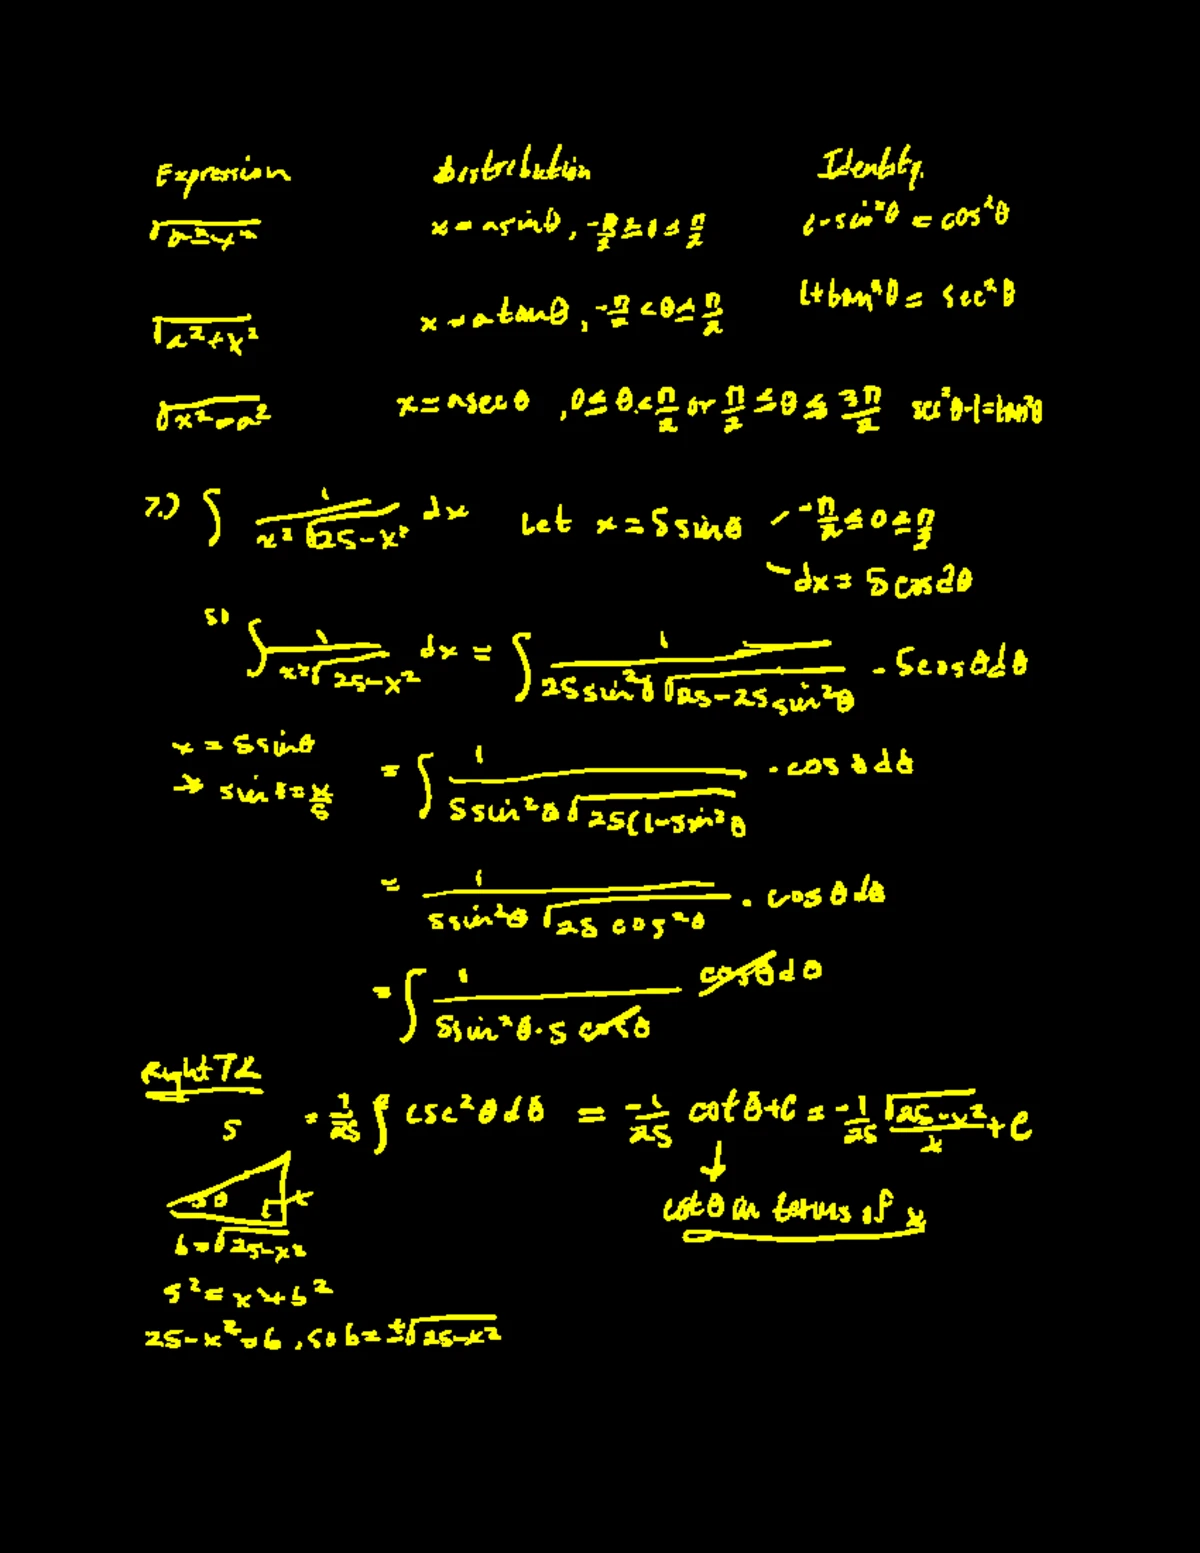 Expression Distribution Identity
√a²-x² x = asinθ, -π/2 ≤ θ ≤ π/2 1-sin²θ = cos²θ
√a²+x² x = atanθ, -π/2 < θ ≤ π/2 1+tan²θ = sec²θ
√x²-a² x = asecθ , 0 ≤ θ < π/2 or π/2 ≤ θ ≤ 3π/2 sec²θ-1 = tan²θ
7.) ∫ 1/(x²√25-x²) dx Let x = 5sinθ -π/2 ≤ θ ≤ π/2
dx = 5cosdθ
so ∫ 1/(x²√25-x²) dx = ∫ 1/(25sin²θ √25-25sin²θ) · 5cosθdθ
x = 5sinθ
→ sinθ = x/5
= ∫ 1/(5sin²θ √25(1-sin²θ) · cosθdθ
= 1/(5sin²θ √25cos²θ) · cosθdθ
= ∫ 1/(5sin²θ·5cosθ) cosθdθ
= 1/25 ∫ csc²θdθ = -1/25 cotθ+C = -1/25 √25-x²/x + C
cotθ in terms of x
Right
5
θ
b=√25-x²
5² = x²+b²
25-x² = b, so b = ±√25-x²